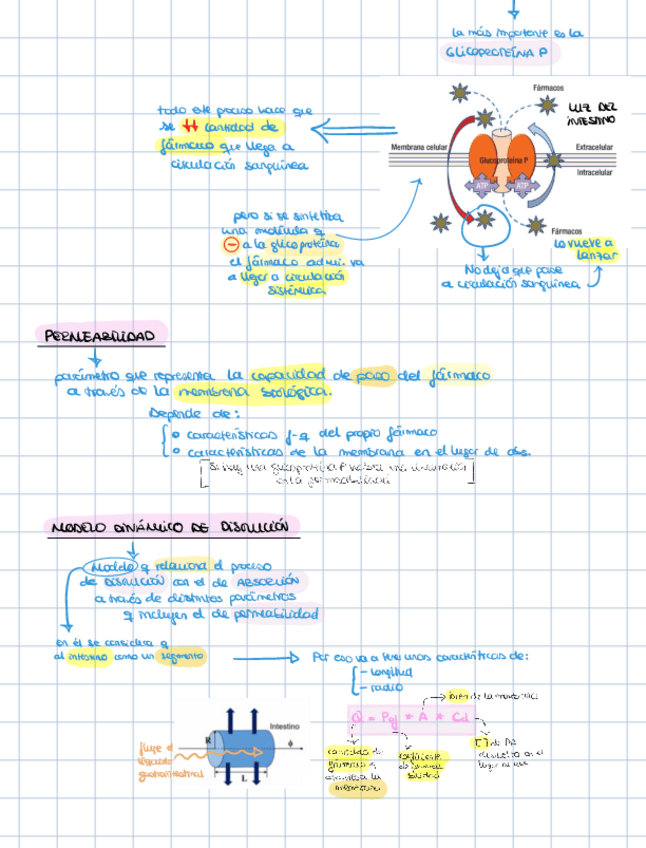 la más importante es la
GLICOPROTEÍNA P
Fármacos
LUZ DEL
INTESTINO
todo este proceso hace que
se ↓↓ cantidad de
fármaco que llega a
circulación sanguínea
Membrana celular
Glicoproteína P
Extracelular
Intracelular
ATP
ATP
Fármacos
lo vuelve a
lanzar
No deja que pase
a circulación sanguínea
pero si se sintetiza
una molécula q
⊖ a la glicoproteína
el fármaco admi. va
a llegar a circulación
sistémica
PERMEABILIDAD
parámetro que representa la capacidad de paso del fármaco
a través de la membrana biológica.
Depende de:
características f-q del propio fármaco
características de la membrana en el lugar de abs.
[Si hay una glicoproteína P
en la permeabilidad]
MODELO DINÁMICO DE DISOLUCIÓN
Modelo q relaciona el proceso
de DISOLUCIÓN con el de ABSORCIÓN
a través de distintos parámetros
q incluyen el de permeabilidad
en él se considera q
al intestino como un segmento
Por eso va a tener unas características de:
- longitud
- radio
área de la membrana
Q = Pef * A * Cd
Intestino
R
L
ϕ
fluye el
líquido
gastrointestinal
cantidad de
fármaco q
atraviesa la
membrana
coeficiente
de permea
bilidad
[ ] de PA
disuelto en el
lugar de abs